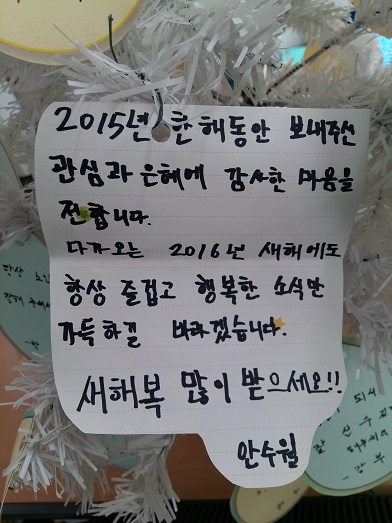 2015년 한해동안 보내주신
관심과 은혜에 감사한 마음을
전합니다.
다가오는 2016년 새해에도
항상 즐겁고 행복한 소식만
가득하길 바라겠습니다.
새해복 많이 받으세요!!
안수월